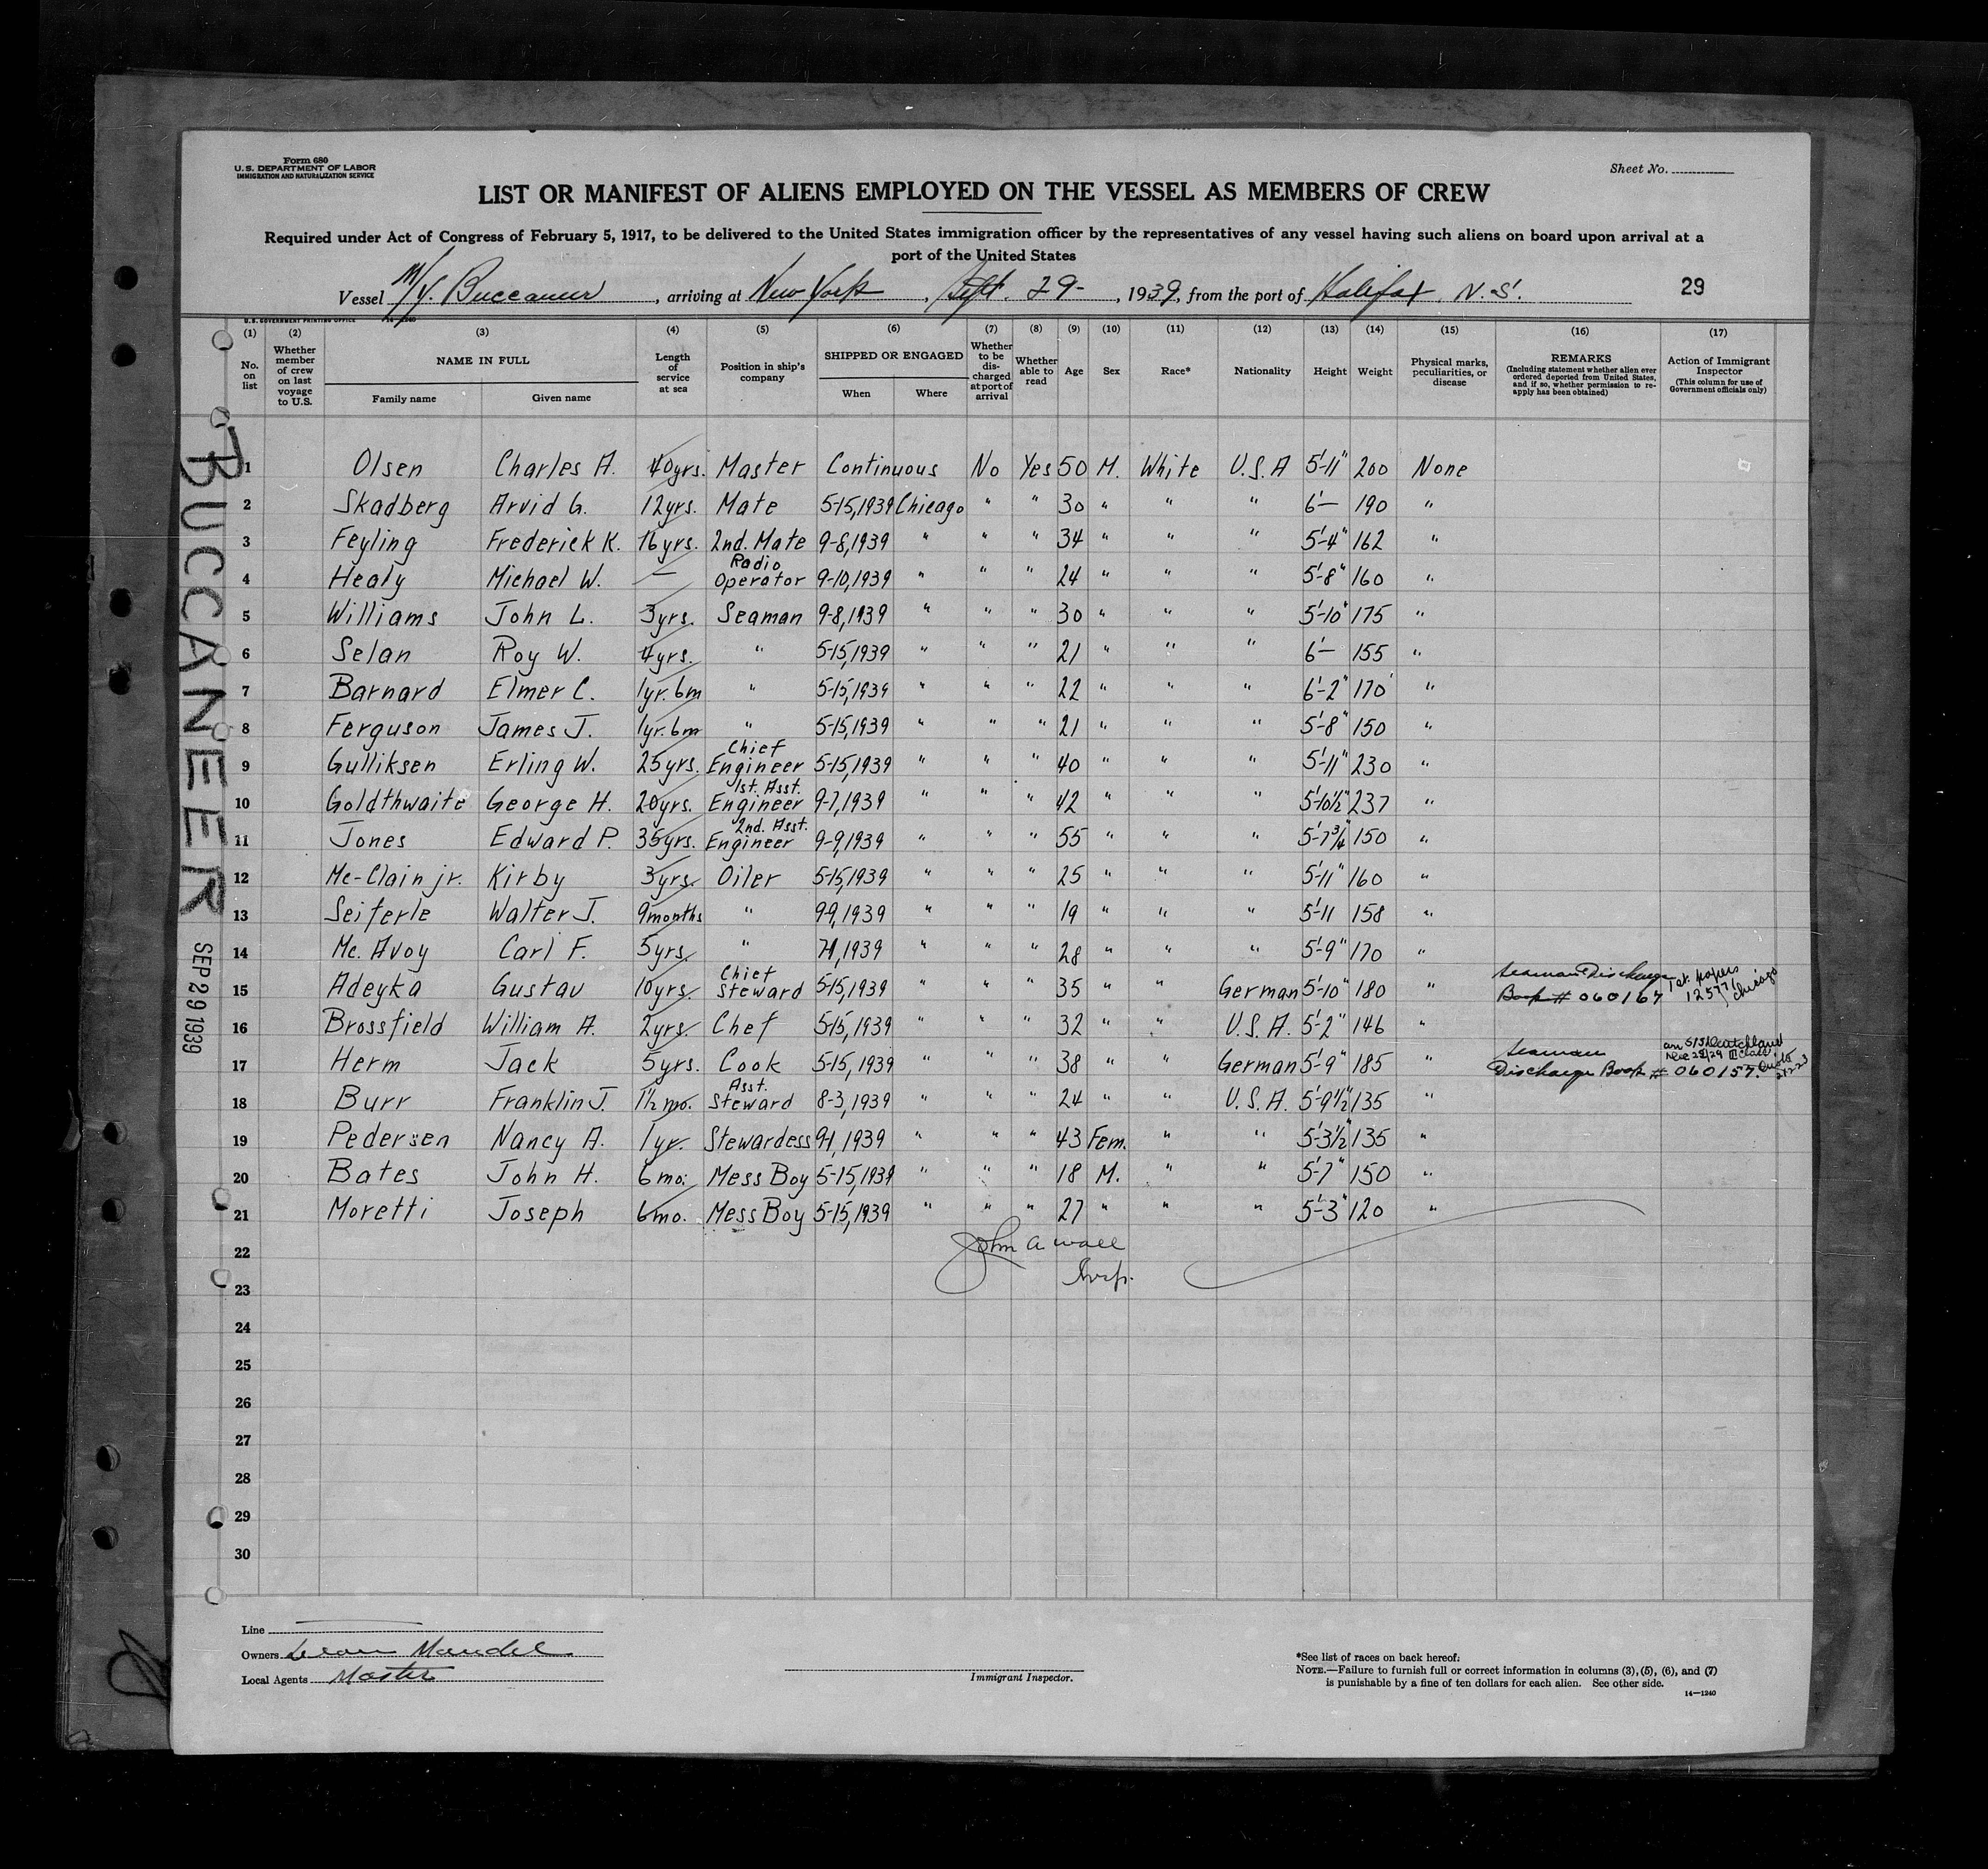 Form 680
U.S. DEPARTMENT OF LABOR
IMMIGRATION AND NATURALIZATION SERVICE
Sheet No.
LIST OR MANIFEST OF ALIENS EMPLOYED ON THE VESSEL AS MEMBERS OF CREW
Required under Act of Congress of February 5, 1917, to be delivered to the United States immigration officer by the representatives of any vessel having such aliens on board upon arrival at a
port of the United States
Vessel M/Y. Buccaneer, arriving at New York, Sept. 29-, 1939, from the port of Halifax, N.S. 29
U.S. GOVERNMENT PRINTING OFFICE
(1) (2) (3) (4) (5) (6) (7) (8) (9) (10) (11) (12) (13) (14) (15) (16) (17)
No. on list
Whether member of crew on last voyage to U.S.
NAME IN FULL
Family name Given name
Length of service at sea
Position in ship's company
SHIPPED OR ENGAGED
When Where
Whether to be discharged at port of arrival
Whether able to read
Age
Sex
Race*
Nationality
Height
Weight
Physical marks, peculiarities, or disease
REMARKS
(Including statement whether alien ever ordered deported from United States, and if so, whether permission to reapply has been obtained)
Action of Immigrant Inspector
(This column for use of Government officials only)
BUCCANEER
SEP 29 1939
1 Olsen Charles A. 40yrs. Master Continuous No Yes 50 M. White U.S.A 5'-11" 200 None
2 Skadberg Arvid G. 12yrs. Mate 5-15,1939 Chicago " " 30 " " " 6'— 190 "
3 Feyling Frederick K. 16yrs. 2nd. Mate 9-8,1939 " " " 34 " " " 5'-4" 162 "
4 Healy Michael W. — Radio Operator 9-10,1939 " " " 24 " " " 5'-8" 160 "
5 Williams John L. 3yrs. Seaman 9-8,1939 " " " 30 " " " 5'-10" 175 "
6 Selan Roy W. 4yrs. " 5-15,1939 " " " 21 " " " 6'— 155 "
7 Barnard Elmer C. 1yr. 6m " 5-15,1939 " " " 22 " " " 6'-2" 170 "
8 Ferguson James J. 1yr. 6m " 5-15,1939 " " " 21 " " " 5'-8" 150 "
9 Gulliksen Erling W. 25yrs. Chief Engineer 5-15,1939 " " " 40 " " " 5'-11" 230 "
10 Goldthwaite George H. 20yrs. 1st. Asst. Engineer 9-7,1939 " " " 42 " " " 5'-10½" 237 "
11 Jones Edward P. 35yrs. 2nd. Asst. Engineer 9-9,1939 " " " 55 " " " 5'-7¾" 150 "
12 Mc-Clain jr. Kirby 3yrs. Oiler 5-15,1939 " " " 25 " " " 5'-11" 160 "
13 Seiferle Walter J. 9months " 9-9,1939 " " " 19 " " " 5'-11 158 "
14 Mc. Avoy Carl F. 5yrs. " 7-1,1939 " " " 28 " " " 5'-9" 170 "
15 Adeyka Gustav 10yrs. Chief Steward 5-15,1939 " " " 35 " " German 5'-10" 180 " Seaman Discharge Book # 060167 1st. papers 125771 Chicago
16 Brossfield William A. 2yrs. Chef 5-15,1939 " " " 32 " " U.S.A. 5'-2" 146 "
17 Herm Jack 5yrs. Cook 5-15,1939 " " " 38 " " German 5'-9" 185 " Seaman Discharge Book # 060157
18 Burr Franklin J. 1½ mo. Asst. Steward 8-3,1939 " " " 24 " " U.S.A. 5'-9½" 135 "
19 Pedersen Nancy A. 1yr. Stewardess 9-1,1939 " " " 43 Fem. " " 5'-3½" 135 "
20 Bates John H. 6mo. Mess Boy 5-15,1939 " " " 18 M. " " 5'-7" 150 "
21 Moretti Joseph 6mo. Mess Boy 5-15,1939 " " " 27 " " " 5'-3" 120 "
22 John A Wall
23 Insp.
24
25
26
27
28
29
30
Line
Owners Leon Mandel
Local Agents Master
Immigrant Inspector.
*See list of races on back hereof.
NOTE.—Failure to furnish full or correct information in columns (3), (5), (6), and (7)
is punishable by a fine of ten dollars for each alien. See other side.
14—1240